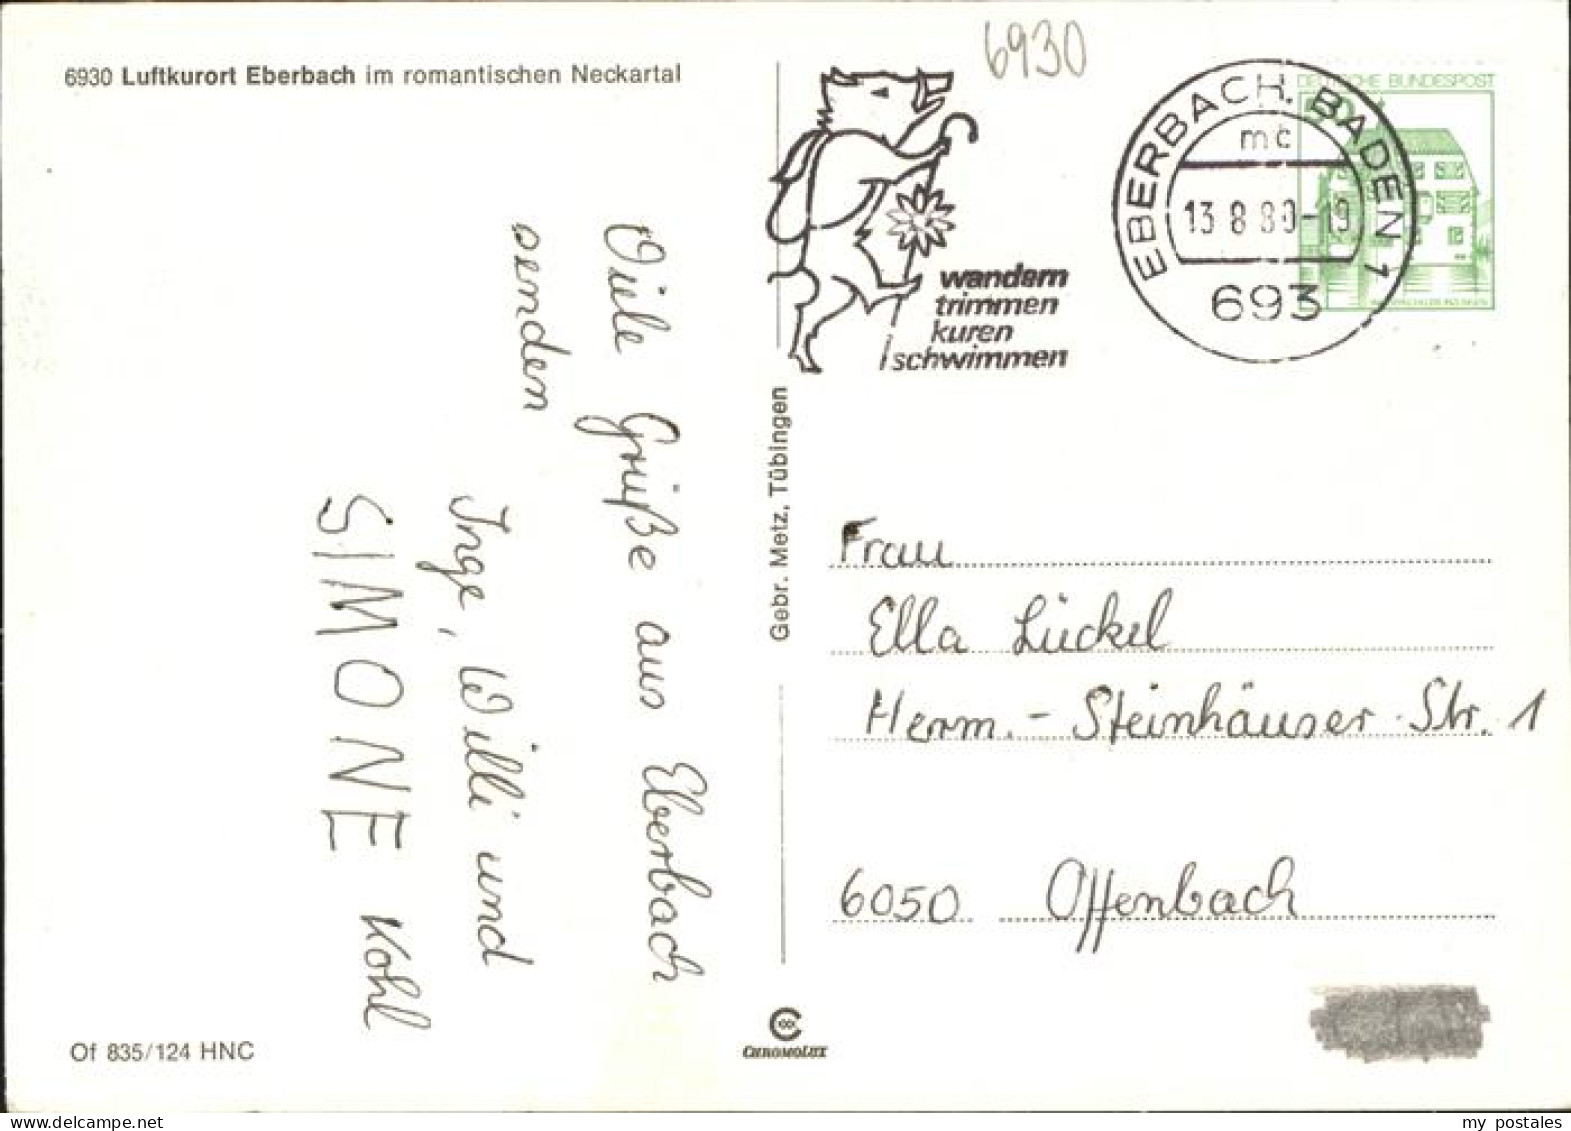 6930 Luftkurort Eberbach im romantischen Neckartal
6930
DEUTSCHE BUNDESPOST
EBERBACH, BADEN 1
mc
13.8.80-19
693
wandern
trimmen
kuren
schwimmen
Viele Grüße aus Eberbach
senden
Inge, Willi und
SIMONE Kohl
Gebr. Metz, Tübingen
Frau
Ella Lückel
Herm.-Steinhäuser Str. 1
6050 Offenbach
Of 835/124 HNC
CHROMOLUX
my postales